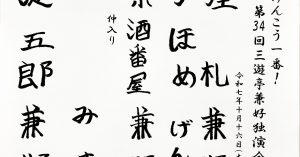 けんこう一番！
第34回三遊亭兼好独演会
令和七年十月十六日
札 兼
ほめ げ
酒番屋 兼
仲入り
み
五郎 兼